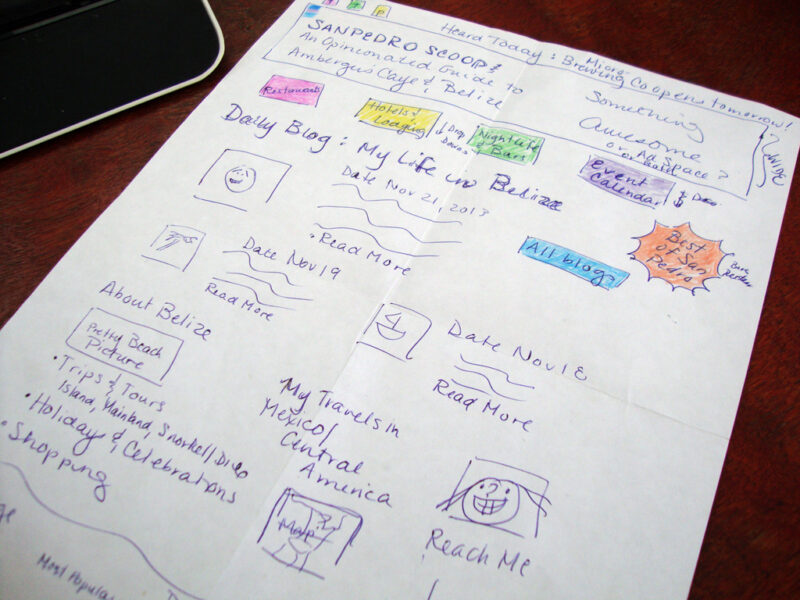 Heard Today: Micro Brewing Co opens tomorrow!
SAN PEDRO SCOOP:
An Opinionated Guide to
Ambergris Caye & Belize
Something
Awesome
or Ad Space?
Restaurants
Hotels &
Lodging
Drop
Downs
Nightlife
& Bars
Event
Calendar
Daily Blog: My Life in Belize
Date Nov 21, 2013
Read More
All blogs
Best
of San
Pedro
Date Nov 19
Read More
About Belize
Pretty Beach
Picture
Date Nov 18
Read More
• Trips & Tours
Island, Mainland, Snorkel/Dive
• Holidays & Celebrations
• Shopping
My Travels in
Mexico/
Central
America
Map
Reach Me
Most Popular